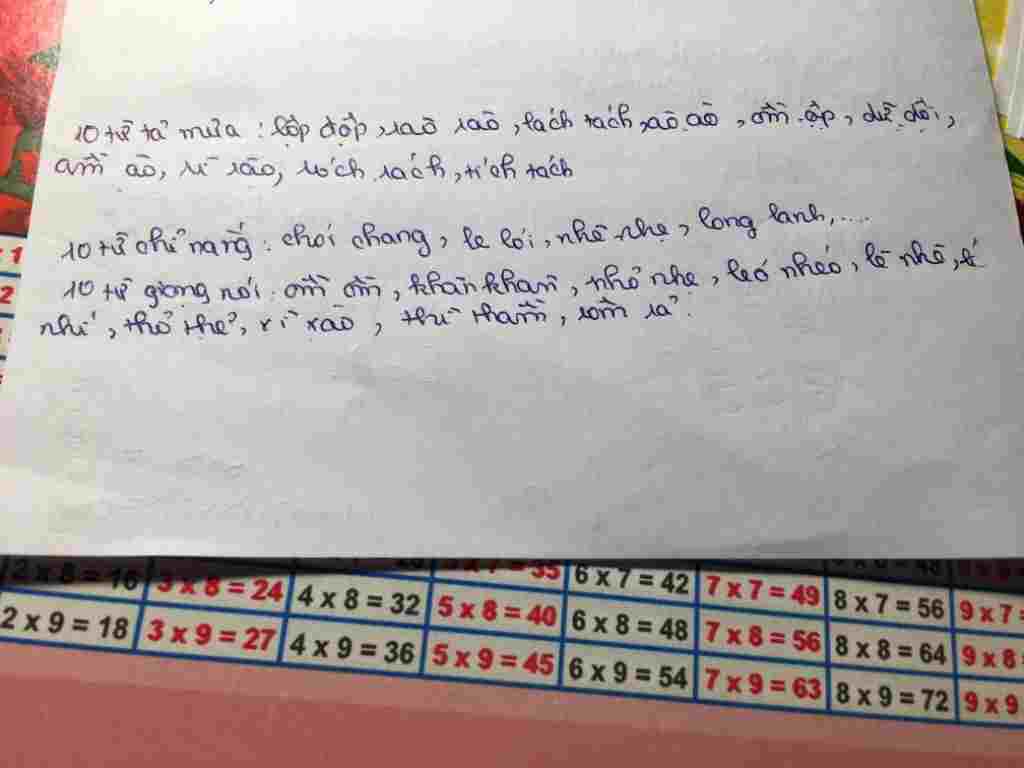 10 từ tả mưa : lộp độp, rào rào, lách tách, ào ào, ồm ộp, dữ dội,
ầm ào, rì rào, róch rách, tích tách
10 từ chỉ nắng : chói chang, le lói, nhè nhẹ, long lanh,....
10 từ giọng nói : ồm ồm, khàn khàn, nhỏ nhẹ, leó nhéo, lè nhè, lí
nhí, thỏ thẻ, rì rào, thì thầm, rôm rả.
1
2
2 x 8 = 16 3 x 8 = 24 4 x 8 = 32 5 x 8 = 40 6 x 7 = 42 7 x 7 = 49 8 x 7 = 56 9 x 7 =
2 x 9 = 18 3 x 9 = 27 4 x 9 = 36 5 x 9 = 45 6 x 8 = 48 7 x 8 = 56 8 x 8 = 64 9 x 8
6 x 9 = 54 7 x 9 = 63 8 x 9 = 72 9 x 9